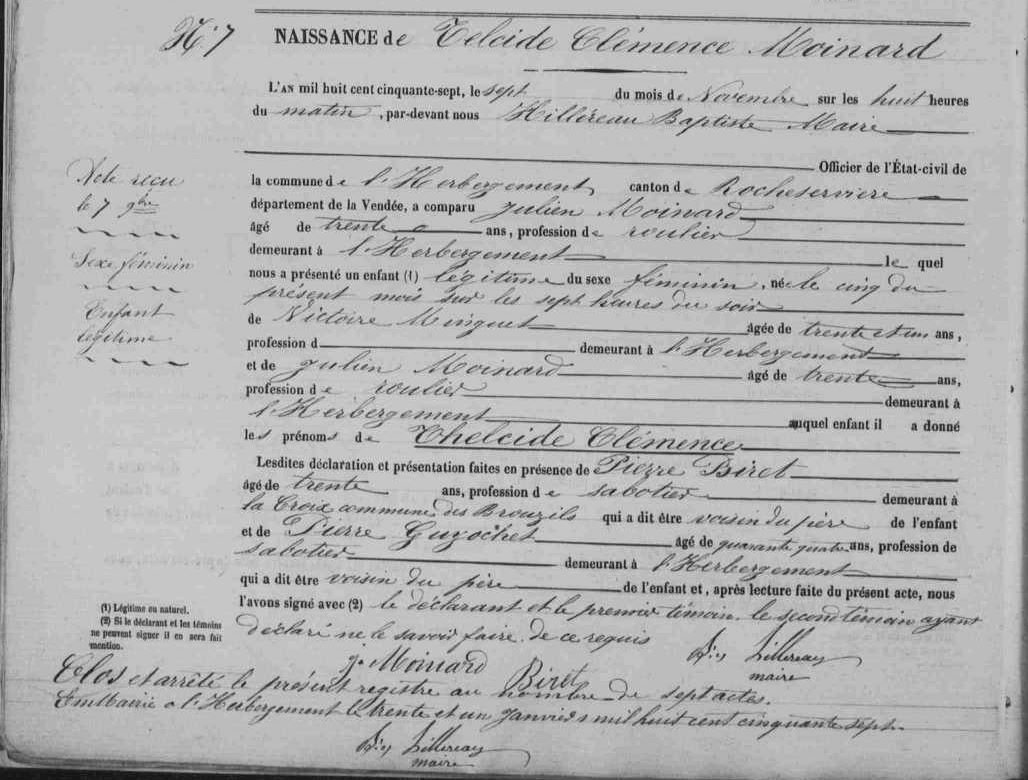 N.° 7
NAISSANCE de Telcide Clémence Moinard
L'AN mil huit cent cinquante-sept, le sept du mois de Novembre sur les huit heures
du matin, par-devant nous Hilléreau Baptiste Maire
Officier de l'État-civil de
la commune de l'Herbergement canton de Rocheserviere
département de la Vendée, a comparu Julien Moinard
âgé de trente ans, profession de roulier
demeurant à l'Herbergement le quel
nous a présenté un enfant (1) légitime du sexe féminin, née le cinq du
présent mois sur les sept heures du soir
de Victoire Minguet âgée de trente et un ans,
profession d demeurant à l'Herbergement
et de Julien Moinard âgé de trente ans,
profession de roulier demeurant à
l'Herbergement auquel enfant il a donné
les prénoms de Thelcide Clémence
Lesdites déclaration et présentation faites en présence de Pierre Biret
âgé de trente ans, profession de sabotier demeurant à
la Croix commune des Brouzils qui a dit être voisin du père de l'enfant
et de Pierre Guyochet âgé de quarante quatre ans, profession de
sabotier demeurant à l'Herbergement
qui a dit être voisin du père de l'enfant et, après lecture faite du présent acte, nous
l'avons signé avec (2) le déclarant et le premier témoin. le second témoin ayant
déclaré ne le savoir faire. de ce requis
J. Moinard Biret
Hillereau
maire
Clos et arrêté le présent registre au nombre de sept actes.
En Mairie a l'Herbergement le trente et un Janvier mil huit cent cinquante sept.
Hillereau
maire
Note reçu
le 7 9bre
Sexe féminin
Enfant
légitime
(1) Légitime ou naturel.
(2) Si le déclarant et les témoins
ne peuvent signer il en sera fait
mention.